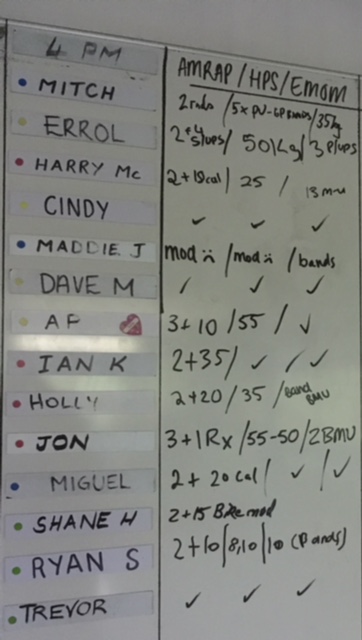 4 PM
AMRAP / HPS / EMOM
MITCH 2 rds / 5x PU-GP BANDS / 35kg
ERROL 2+4 s/ups / 50kg / 3 P/ups
HARRY Mc 2+19cal / 25 / 13 mu
CINDY ✓ ✓ ✓
MADDIE J mod :( / mod :( / bands
DAVE M ✓ ✓ ✓
AP 3+10 / 55 / ✓
IAN K 2+35 / ✓ / ✓
HOLLY 2+20 / 35 / Band BMU
JON 3+1 Rx / 55-50 / 2BMU
MIGUEL 2+20 Cal / ✓ / ✓
SHANE H 2+15 Bike mod
RYAN S 2+10 / 8,10 / 10 (Bands)
TREVOR ✓ ✓ ✓